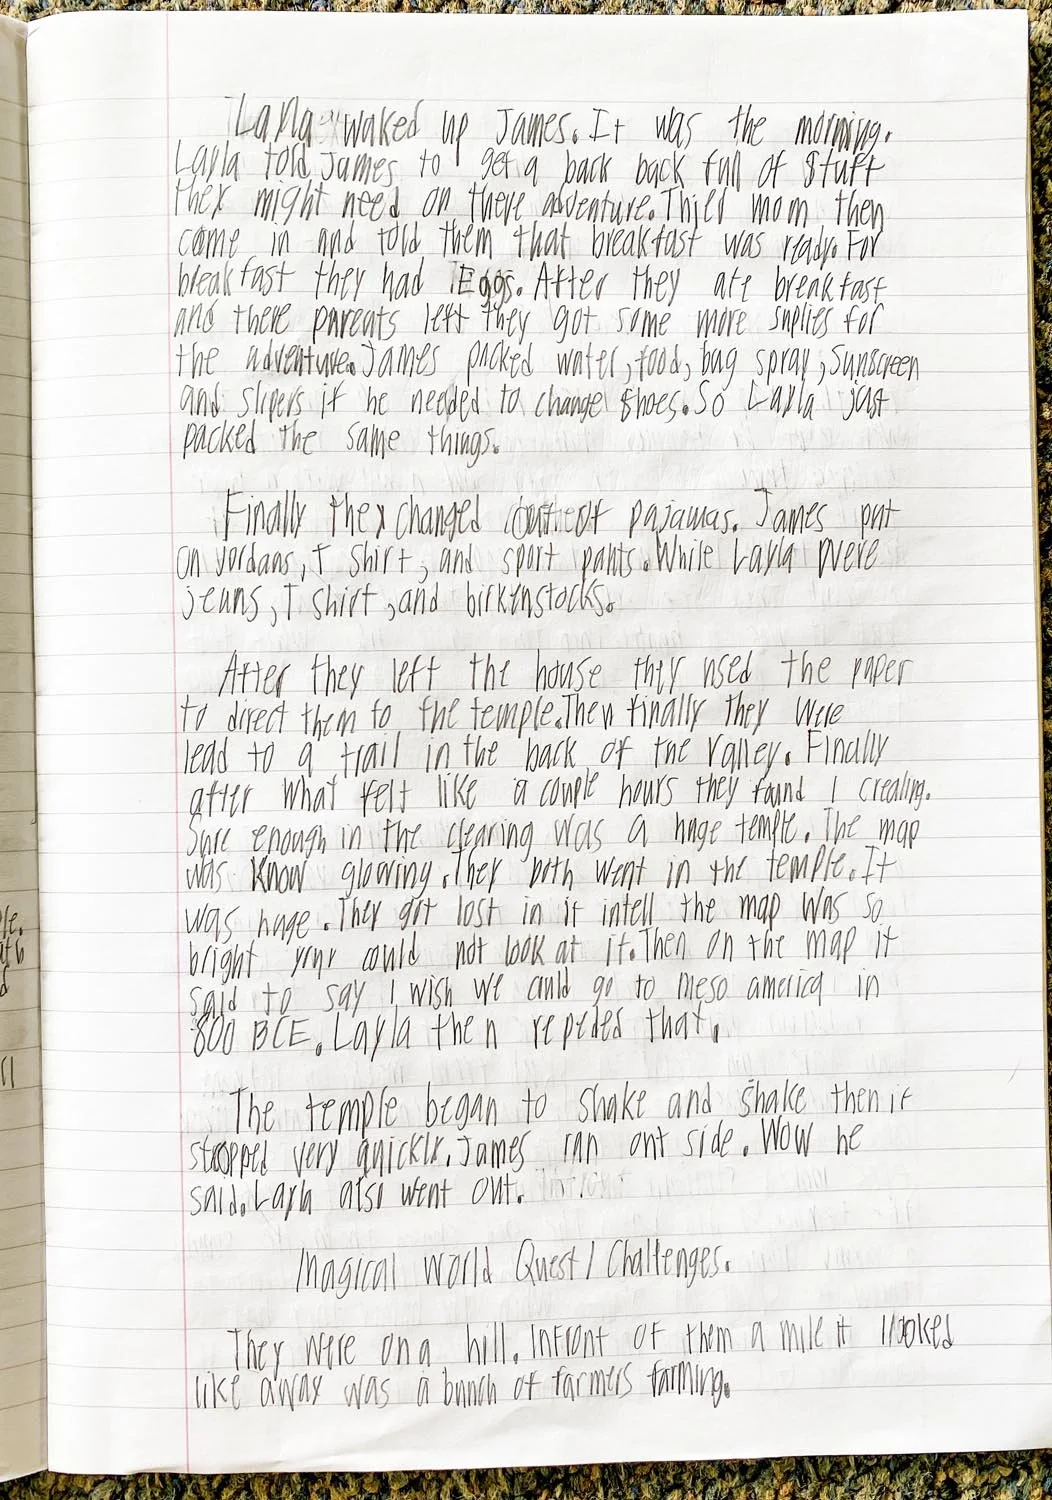 Layla waked up James. It was the morning.
Layla told James to get a back back full of stuff
they might need on there adventure. Thier mom then
come in and told them that breakfast was ready. For
breakfast they had Eggs. After they ate breakfast
and there parents left they got some more suplies for
the adventure. James packed water, food, bug spray, Sunscreen
and slipers if he needed to change shoes. So Layla just
packed the same things.
Finally they changed out of pajamas. James put
on jordans, T shirt, and sport pants. While Layla Were
jeans, T shirt, and birkenstocks.
After they left the house they used the paper
to direct them to the temple. Then finally they were
lead to a trail in the back of the valley. Finally
after what felt like a couple hours they found 1 crealing.
Sure enough in the clearing was a huge temple. The map
was know glowing. They both went in the temple. It
was huge. They got lost in it intell the map was so
bright your could not look at it. Then on the map it
said to say I wish we could go to meso america in
800 BCE. Layla then repeded that.
The temple began to shake and shake then it
stopped very quickly. James ran out side. Wow he
said. Layla also went out.
Magical World Quest/Challenges.
They were on a hill. Infront of them a mile it llooked
like away was a bunch of farmers farming.
ple.
d